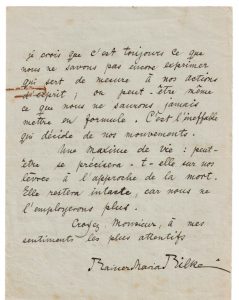 je crois que c'est toujours ce que
nous ne savons pas encore exprimer
qui sert de mesure à nos actions
d'esprit ; ou peut-être même
ce que nous ne saurons jamais
mettre en formule. C'est l'ineffable
qui décide de nos mouvements.
Une maxime de vie : peut-
être se précisera-t-elle sur nos
lèvres à l'approche de la mort.
Elle restera intacte, car nous ne
l'employerons plus.
Croyez Monsieur, à mes
sentiments les plus attentifs
Rainer Maria Rilke